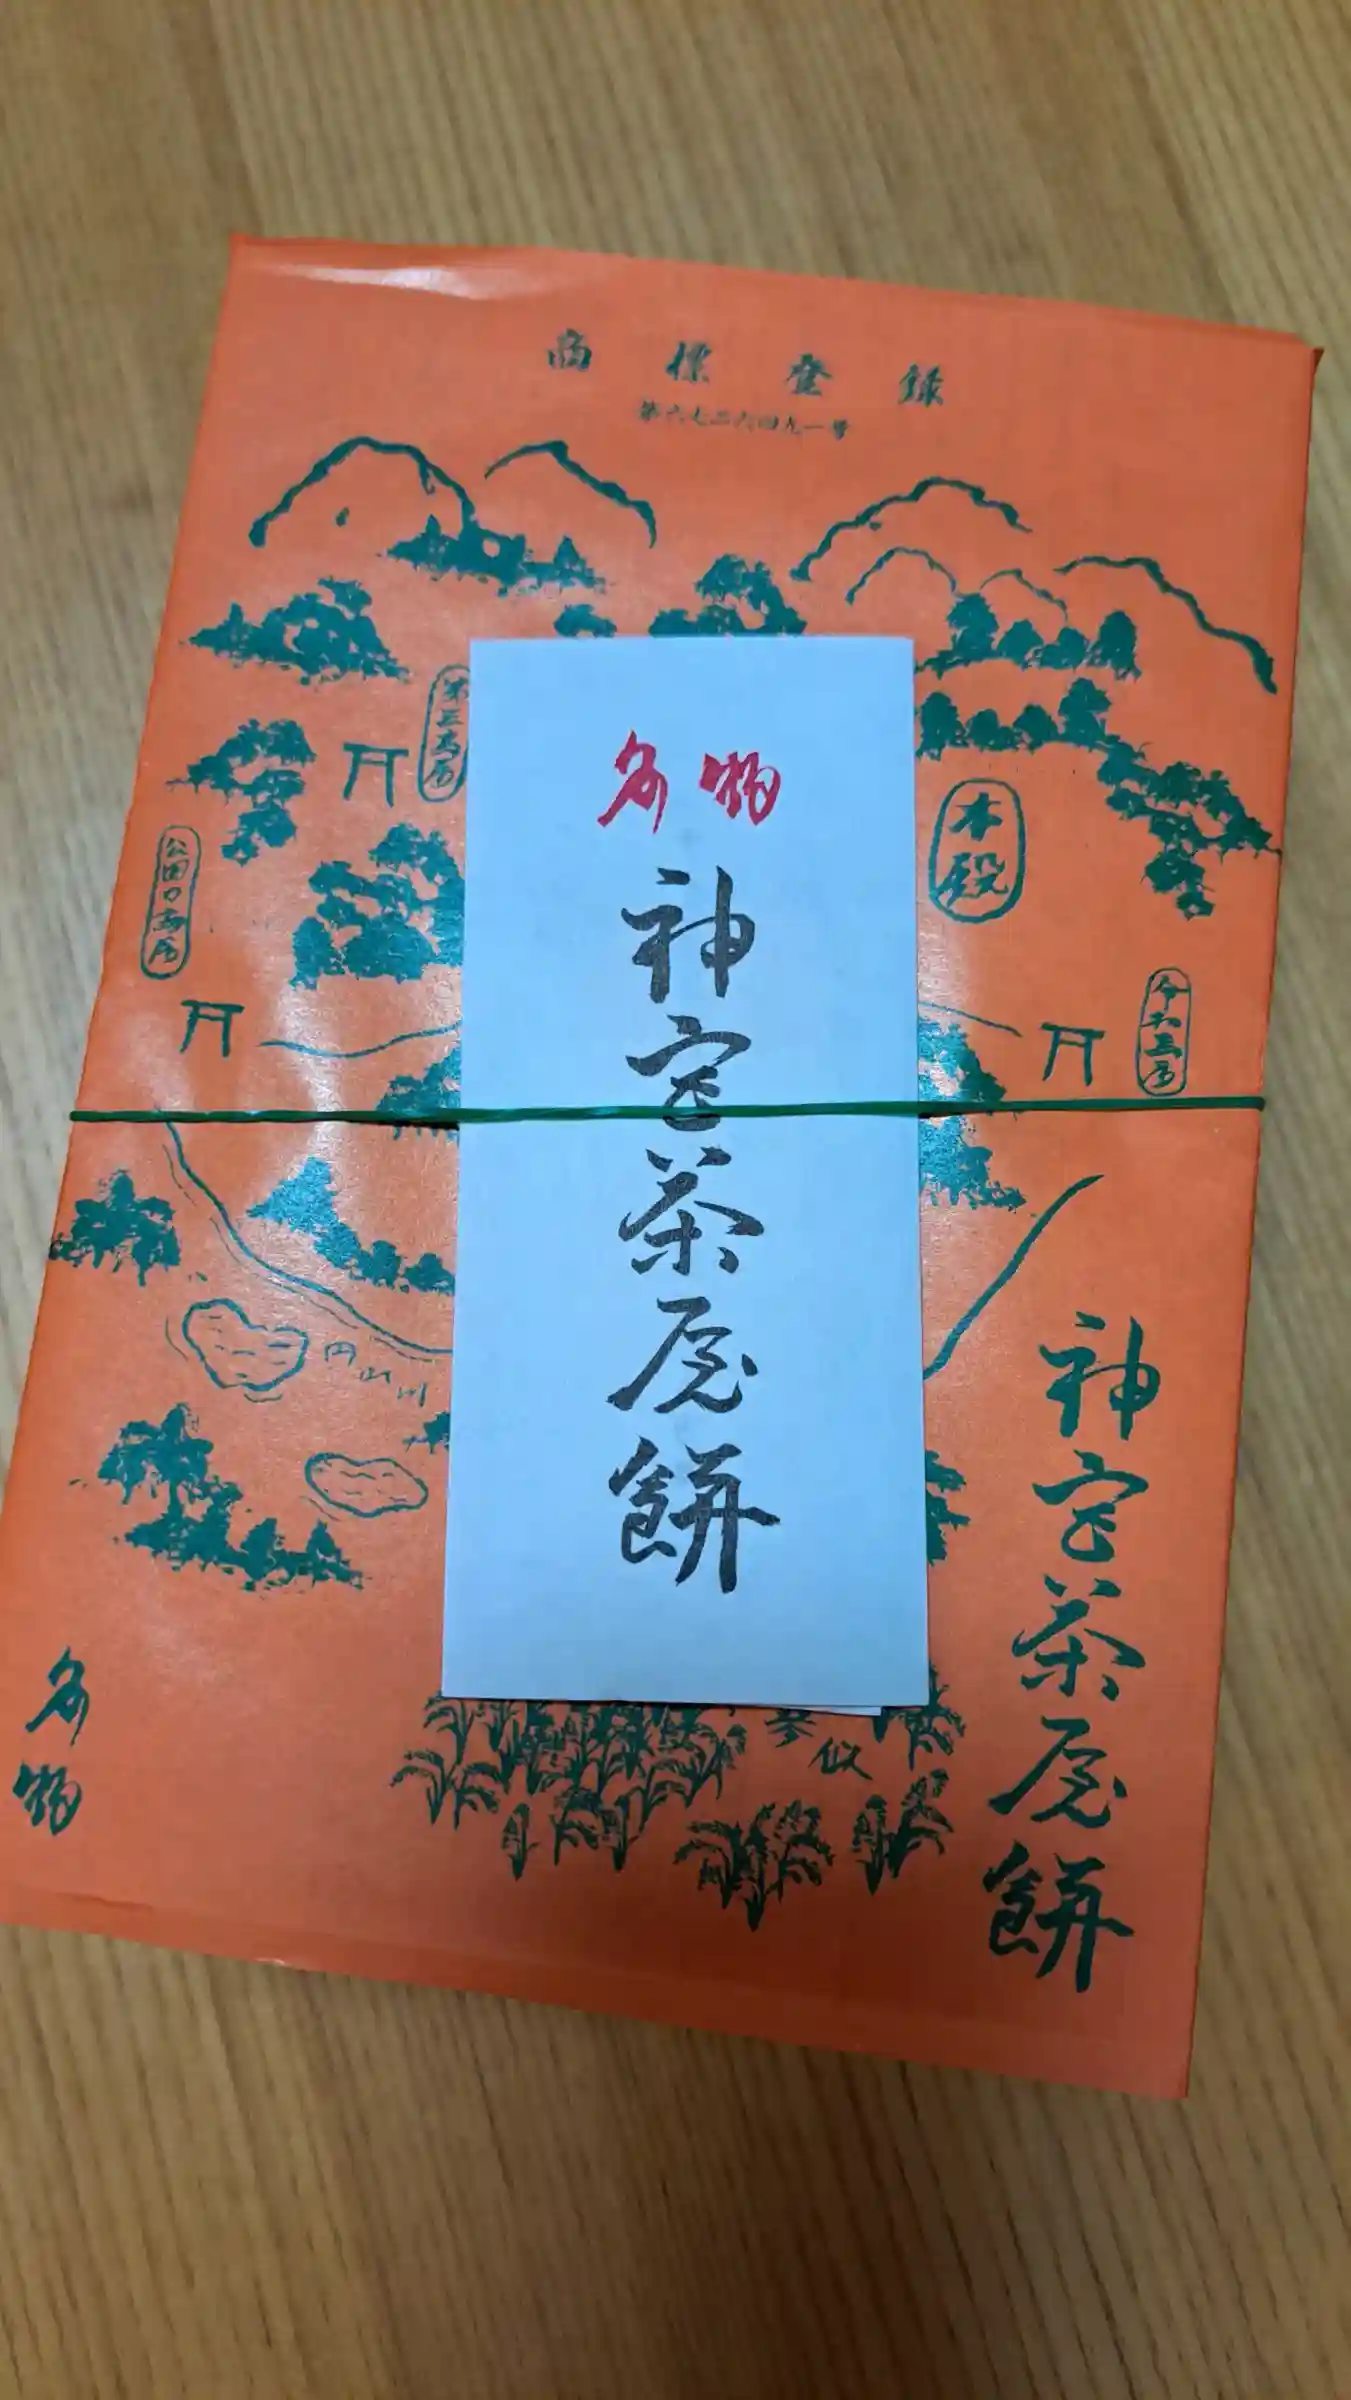 商標登録
第六七二六四九一号
第三鳥居
公園口鳥居
本殿
円山川
名物
神宮茶屋餅
神宮茶屋餅
名物